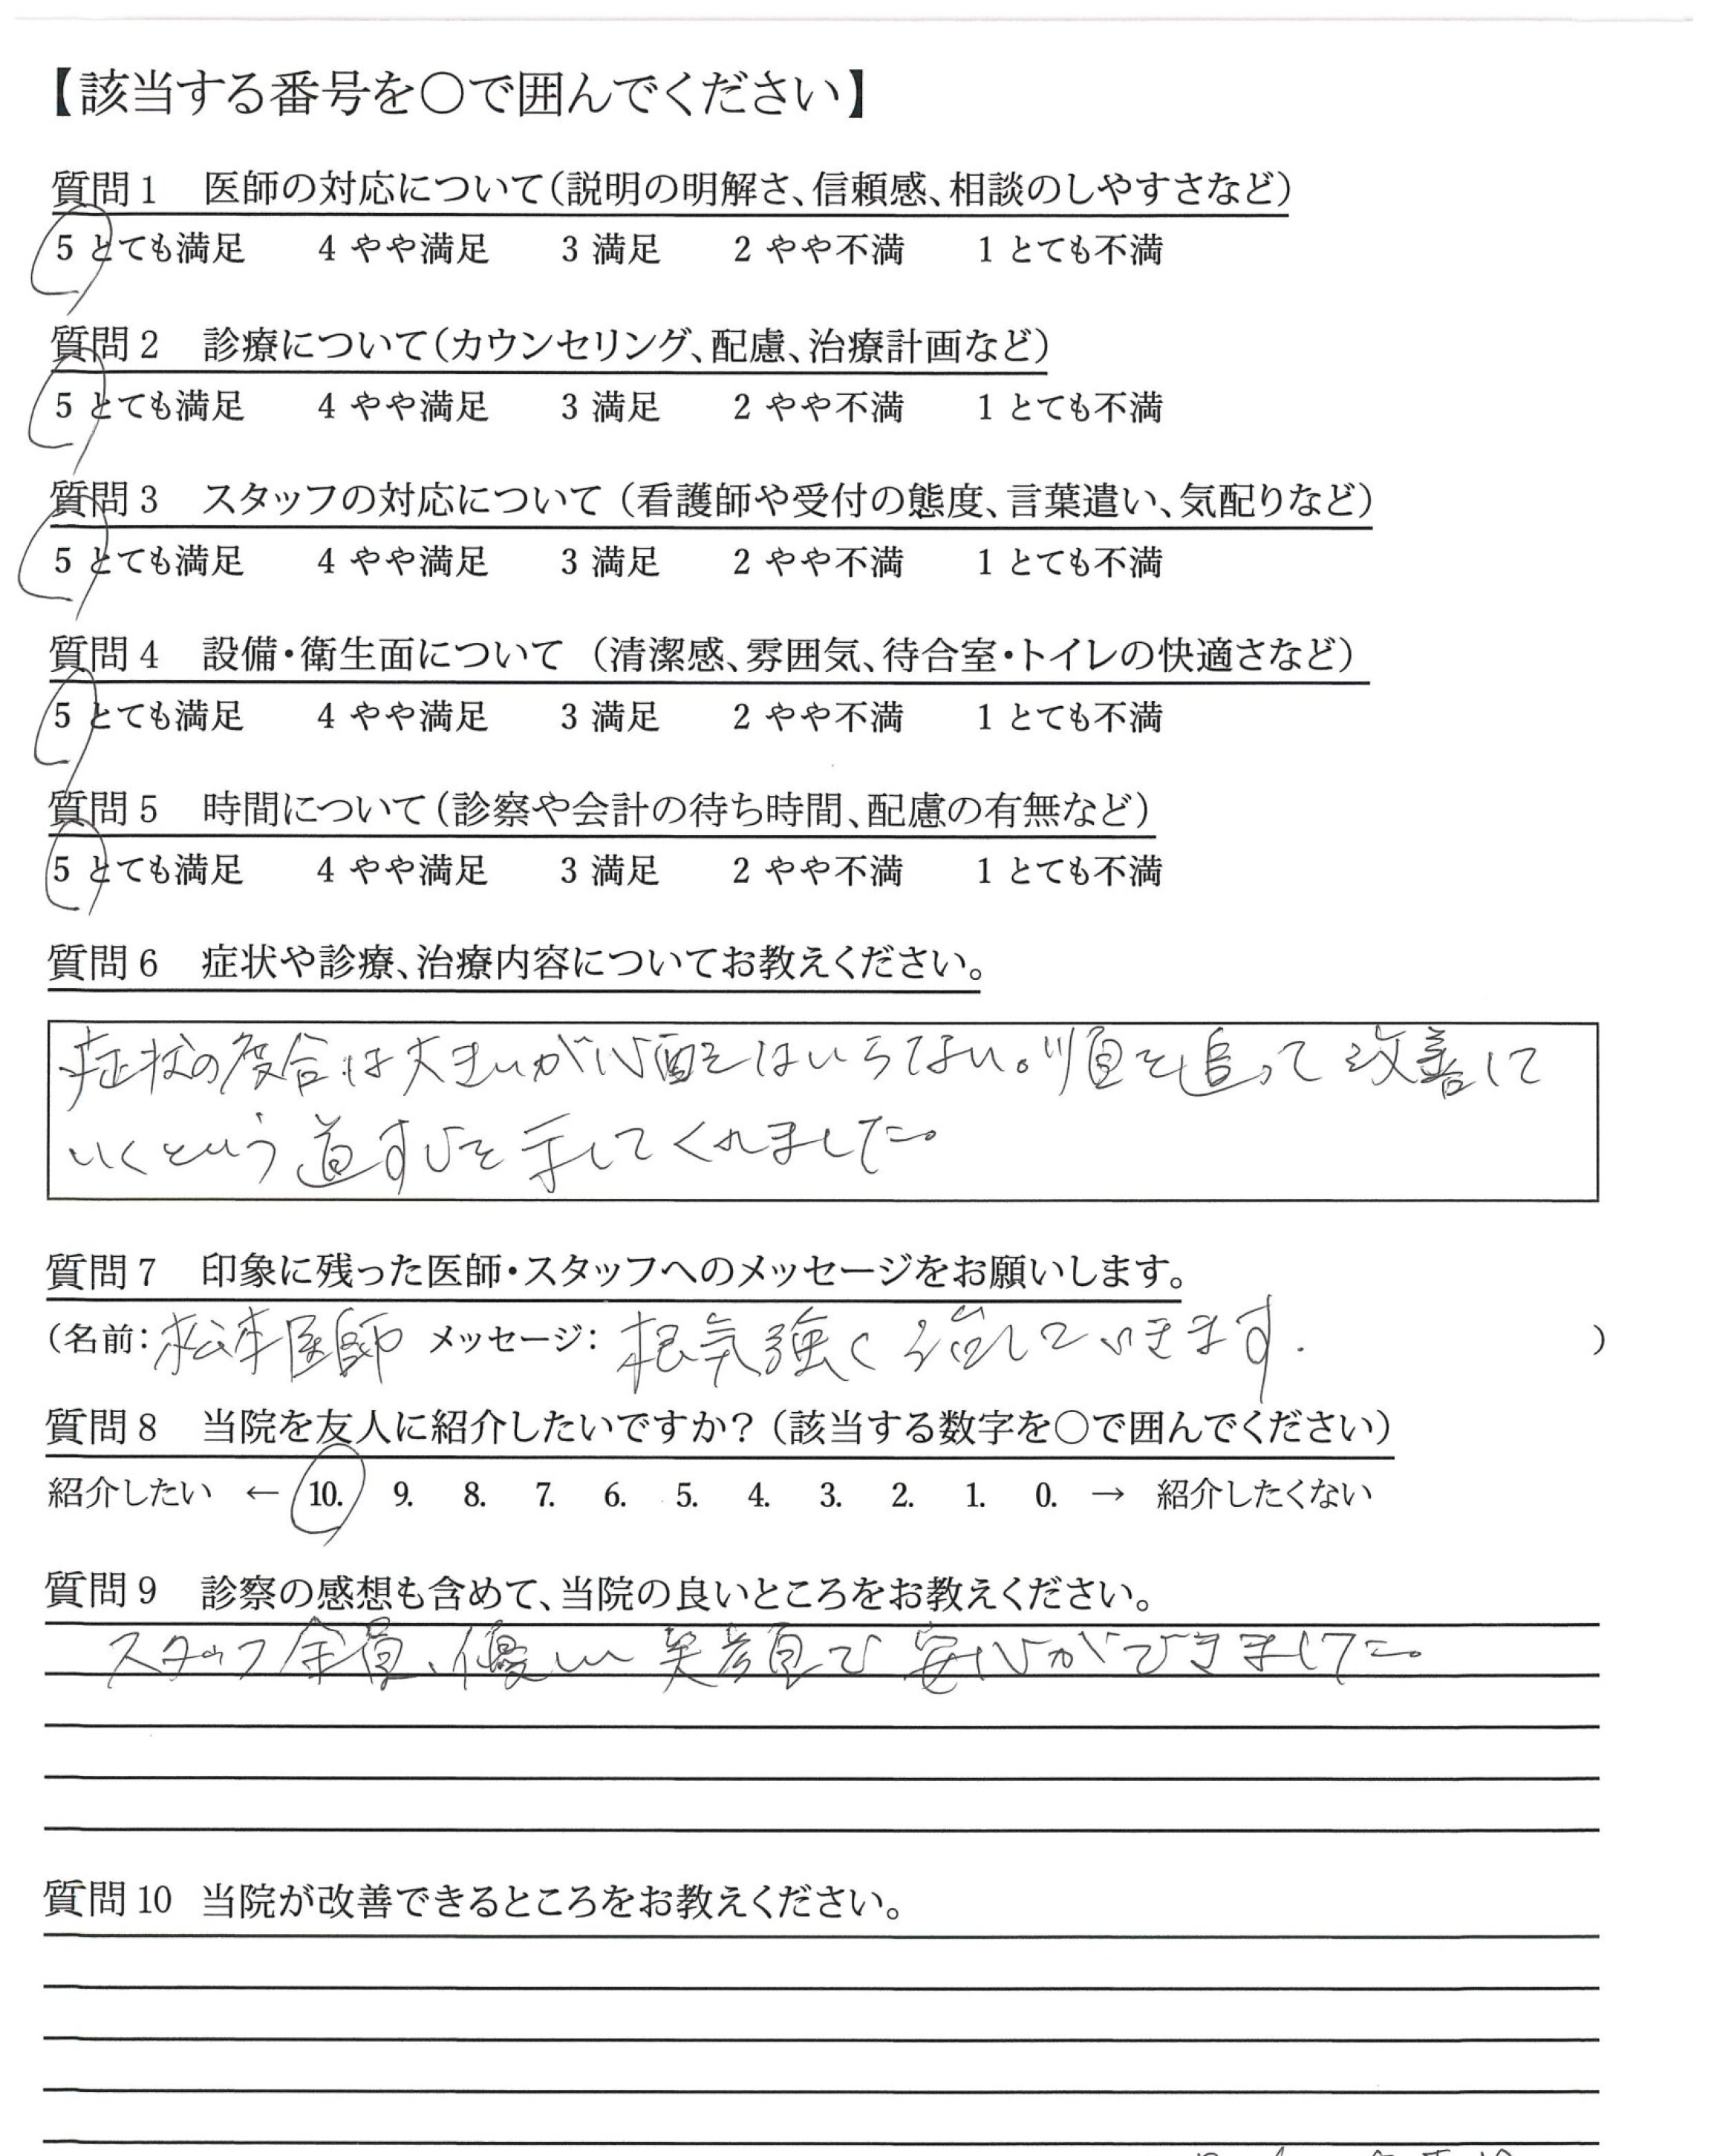 【該当する番号を○で囲んでください】
質問1 医師の対応について(説明の明解さ、信頼感、相談のしやすさなど)
5 とても満足 4 やや満足 3 満足 2 やや不満 1 とても不満
質問2 診療について(カウンセリング、配慮、治療計画など)
5 とても満足 4 やや満足 3 満足 2 やや不満 1 とても不満
質問3 スタッフの対応について(看護師や受付の態度、言葉遣い、気配りなど)
5 とても満足 4 やや満足 3 満足 2 やや不満 1 とても不満
質問4 設備・衛生面について (清潔感、雰囲気、待合室・トイレの快適さなど)
5 とても満足 4 やや満足 3 満足 2 やや不満 1 とても不満
質問5 時間について(診察や会計の待ち時間、配慮の有無など)
5 とても満足 4 やや満足 3 満足 2 やや不満 1 とても不満
質問6 症状や診療、治療内容についてお教えください。
症状の度合は大きいが心配はいらない。順を追って改善して
いくという道すじを示してくれました。
質問7 印象に残った医師・スタッフへのメッセージをお願いします。
(名前:松本医師 メッセージ: 根気強く治していきます. )
質問8 当院を友人に紹介したいですか?(該当する数字を○で囲んでください)
紹介したい ← 10. 9. 8. 7. 6. 5. 4. 3. 2. 1. 0. → 紹介したくない
質問9 診察の感想も含めて、当院の良いところをお教えください。
スタッフ全員、優しい笑顔で安心ができました。
質問10 当院が改善できるところをお教えください。